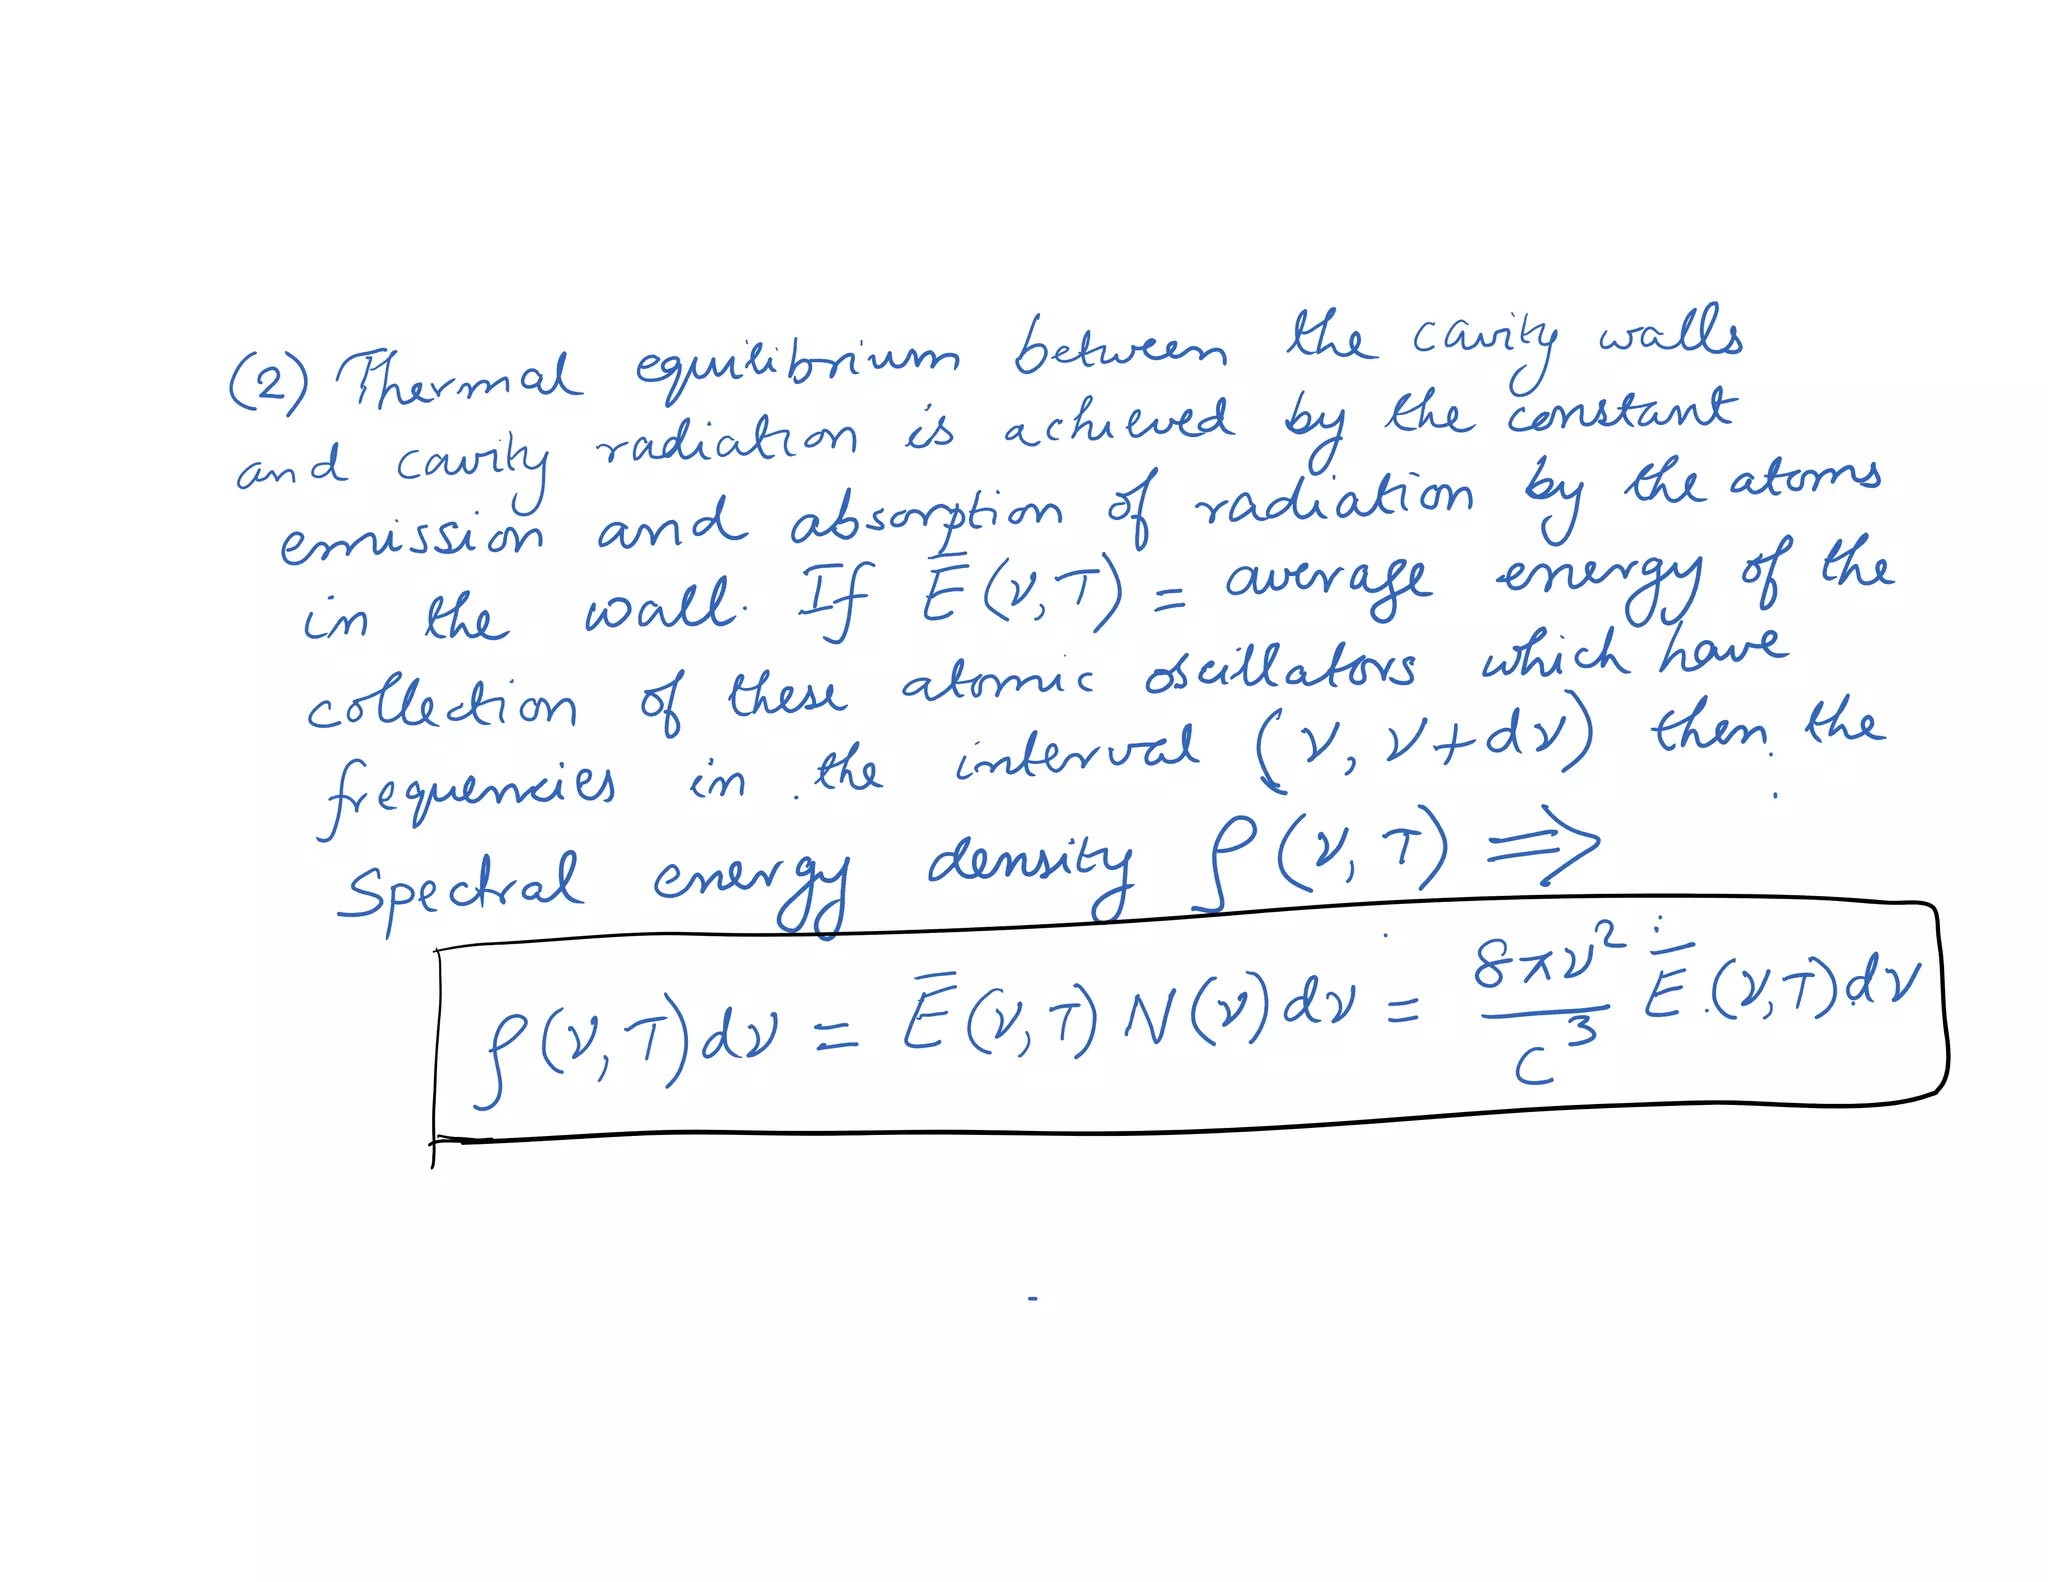 (2) Thermal equilibrium between the cavity walls
and cavity radiation is achieved by the constant
emission and absorption of radiation by the atoms
in the wall. If Ē(ν,T) = average energy of the
collection of these atomic oscillators which have
frequencies in the interval (ν, ν+dν) then the
Spectral energy density ρ(ν, T) ⇒
ρ(ν,T)dν = Ē(ν,T) N(ν)dν = 8πν²/c³ Ē(ν,T)dν